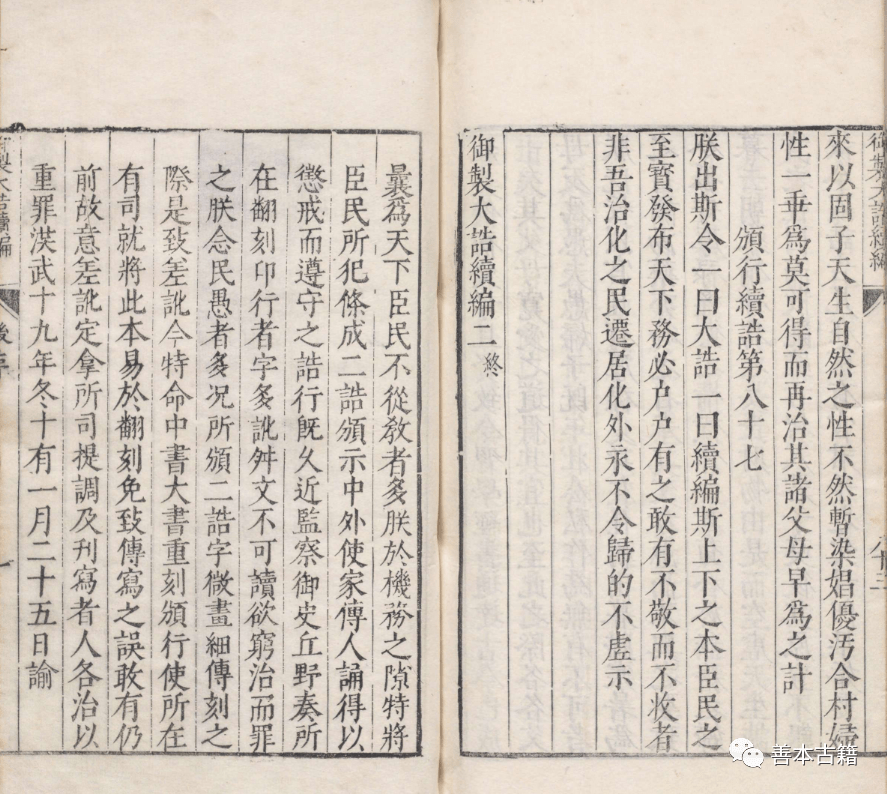 御製大誥續編
來以固子天生自然之性不然暫染娼優汚合村婦
性一乖爲莫可得而再治其諸父母早爲之計
頒行續誥第八十七
朕出斯令一曰大誥一曰續編斯上下之本臣民之
至寳發布天下務必户户有之敢有不敬而不收者
非吾治化之民遷居化外永不令歸的不虛示
御製大誥續編二終
曩爲天下臣民不從教者多朕於機務之隙特將
臣民所犯條成二誥頒示中外使家傳人誦得以
懲戒而遵守之誥行既乆近監察御史丘野奏所
在翻刻印行者字多訛舛文不可讀欲窮治而罪
之朕念民愚者多况所頒二誥字微畫細傳刻之
際是致差訛今特命中書大書重刻頒行使所在
有司就將此本易於翻刻免致傳寫之誤敢有仍
前故意差訛定拿所司提調及刊寫者人各治以
重罪洪武十九年冬十有一月二十五日諭
御製大誥續編
後序
善本古籍